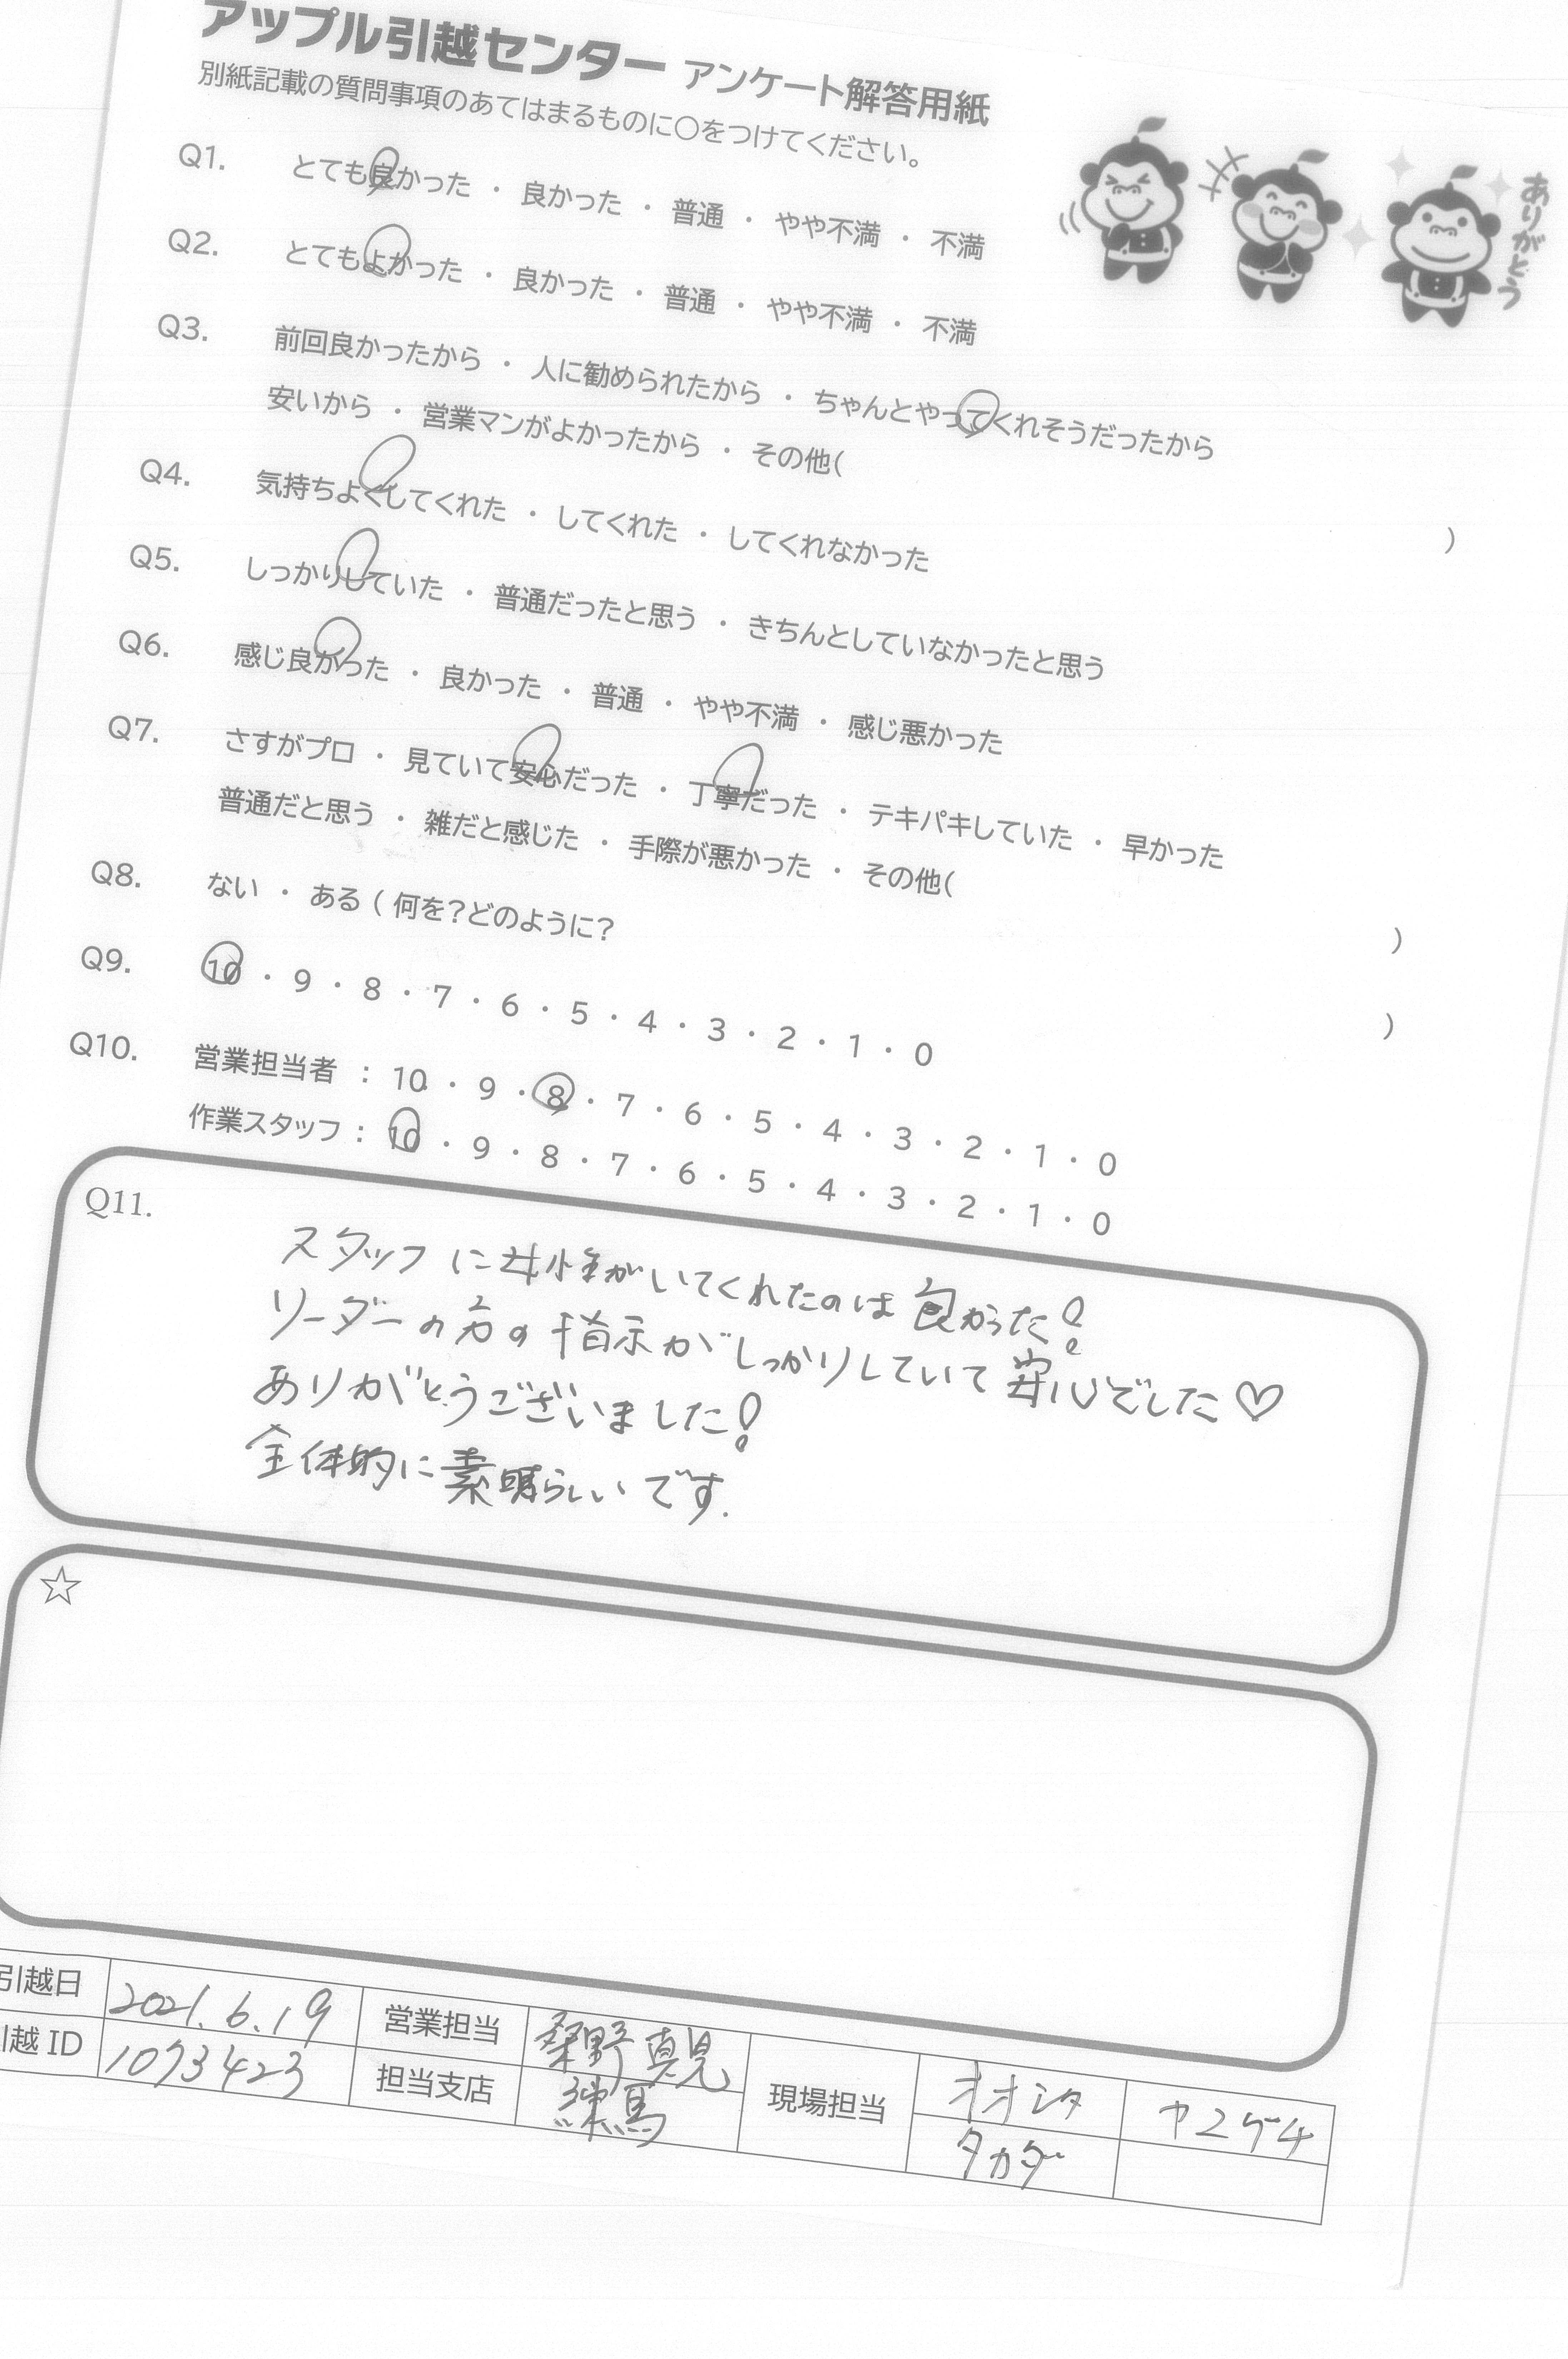 アップル引越センター アンケート解答用紙
別紙記載の質問事項のあてはまるものに〇をつけてください。
ありがとう
Q1. とても良かった ・ 良かった ・ 普通 ・ やや不満 ・ 不満
Q2. とてもよかった ・ 良かった ・ 普通 ・ やや不満 ・ 不満
Q3. 前回良かったから ・ 人に勧められたから ・ ちゃんとやってくれそうだったから
安いから ・ 営業マンがよかったから ・ その他( )
Q4. 気持ちよくしてくれた ・ してくれた ・ してくれなかった
Q5. しっかりしていた ・ 普通だったと思う ・ きちんとしていなかったと思う
Q6. 感じ良かった ・ 良かった ・ 普通 ・ やや不満 ・ 感じ悪かった
Q7. さすがプロ ・ 見ていて安心だった ・ 丁寧だった ・ テキパキしていた ・ 早かった
普通だと思う ・ 雑だと感じた ・ 手際が悪かった ・ その他( )
Q8. ない ・ ある ( 何を?どのように? )
Q9. 10 ・ 9 ・ 8 ・ 7 ・ 6 ・ 5 ・ 4 ・ 3 ・ 2 ・ 1 ・ 0
Q10. 営業担当者 : 10 ・ 9 ・ 8 ・ 7 ・ 6 ・ 5 ・ 4 ・ 3 ・ 2 ・ 1 ・ 0
作業スタッフ : 10 ・ 9 ・ 8 ・ 7 ・ 6 ・ 5 ・ 4 ・ 3 ・ 2 ・ 1 ・ 0
Q11.
スタッフに女性がいてくれたのは良かった!
リーダーの方の指示がしっかりしていて安心でした♡
ありがとうございました!
全体的に素晴らしいです.
☆
引越日 2021.6.19 営業担当 桑野 真晃 現場担当 オオシタ
越 ID 1073423 担当支店 練馬 タカダ